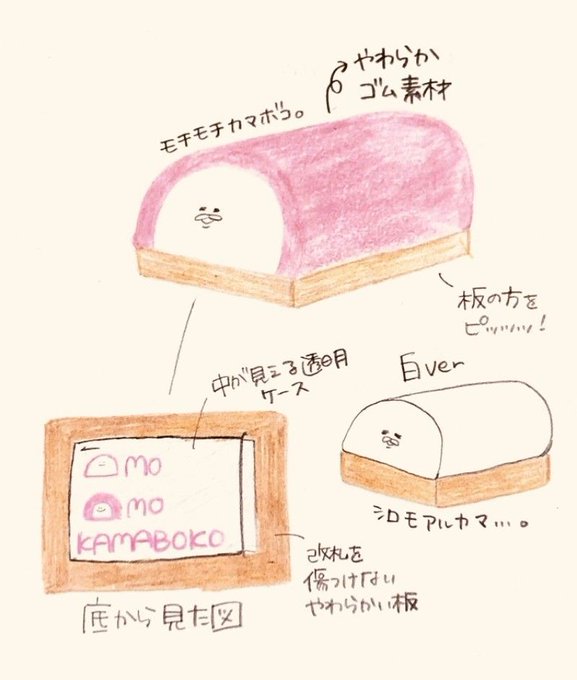 やわらか
ゴム素材
モチモチカマボコ。
板の方を
ピッッッッ!
中が見える透明
ケース
白ver
←
MO
MO
KAMABOKO
シロモアルカマ…。
改札を
傷つけない
やわらかい板
底から見た図